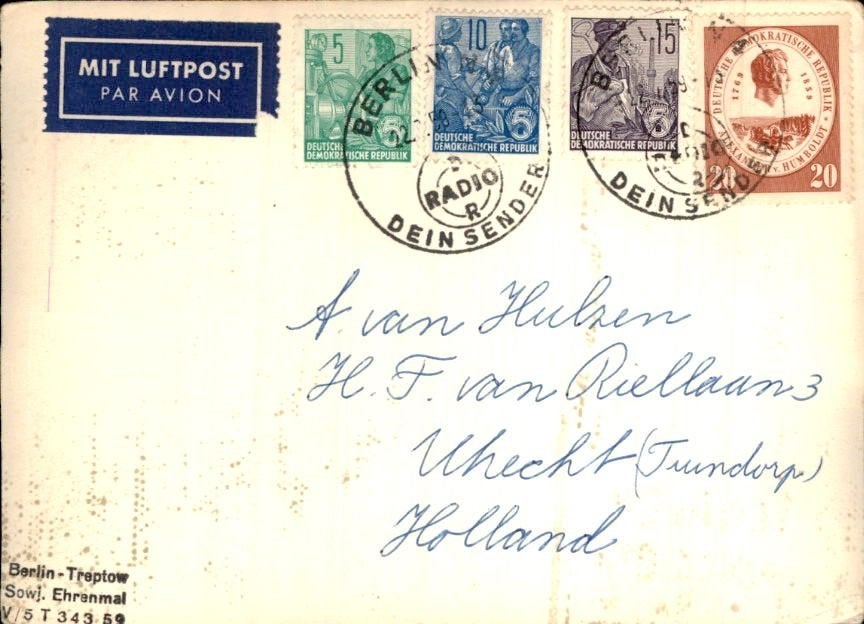 MIT LUFTPOST
PAR AVION
5
DEUTSCHE
DEMOKRATISCHE REPUBLIK
10
DEUTSCHE
DEMOKRATISCHE REPUBLIK
15
DEUTSCHE
DEMOKRATISCHE REPUBLIK
DEUTSCHE DEMOKRATISCHE REPUBLIK
1769 1859
ALEXANDER V. HUMBOLDT
20 20
BERLIN
RADIO
DEIN SENDER
BERLIN
RADIO
DEIN SENDER
A van Hulzen
H. F. van Riellaan 3
Utrecht (Tuindorp)
Holland
Berlin-Treptow
Sowj. Ehrenmal
V/5 T 343 59